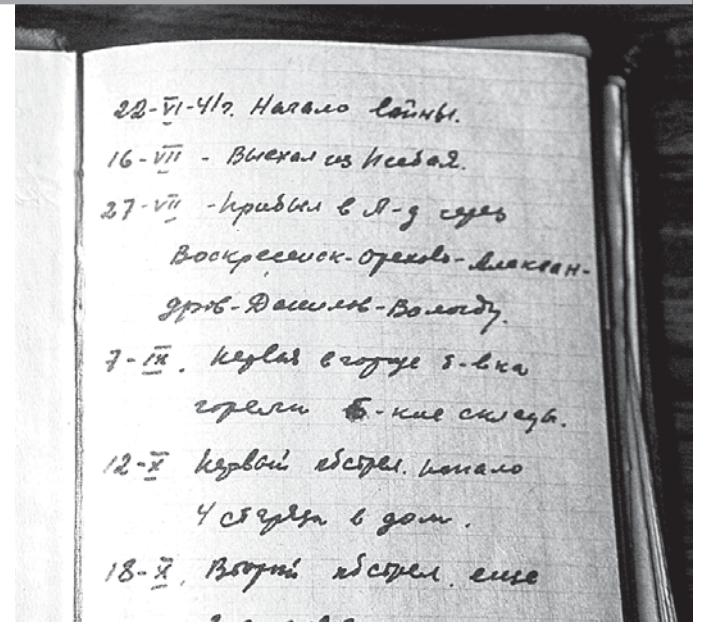 22-VI-41г. Начало войны.
16-VII - Выехал из
27-VII - Прибыл в Л-д через
Воскресенск-Орехово-Алексан-
дров-Данилов-Вологду.
7-IX. Первая в городе б-вка
горели Б-кие склады.
12-X Первый обстрел. попало
4 снаряда в дом.
18-X. Второй обстрел. еще